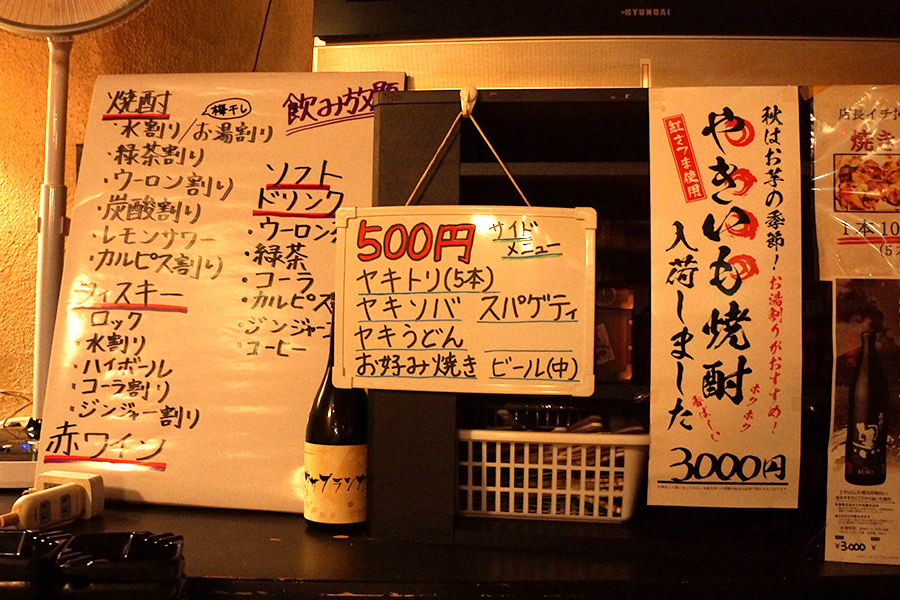 HYUNDAI
飲み放題
焼酎
梅干し
・水割り/お湯割り
・緑茶割り
・ウーロン割り
・炭酸割り
・レモンサワー
・カルピス割り
ウィスキー
・ロック
・水割り
・ハイボール
・コーラ割り
・ジンジャー割り
赤ワイン
ソフト
ドリンク
・ウーロン
・緑茶
・コーラ
・カルピス
・ジンジャー
・コーヒー
500円
サイド
メニュー
ヤキトリ(5本)
ヤキソバ スパゲティ
ヤキうどん
お好み焼き ビール(中)
秋はお芋の季節!お湯割りがおすすめ!
やきいも焼酎
紅さつま使用
入荷しました
ホクホク
香ばしい
3000円
店長イチ
焼き
1本10
黒
¥3000